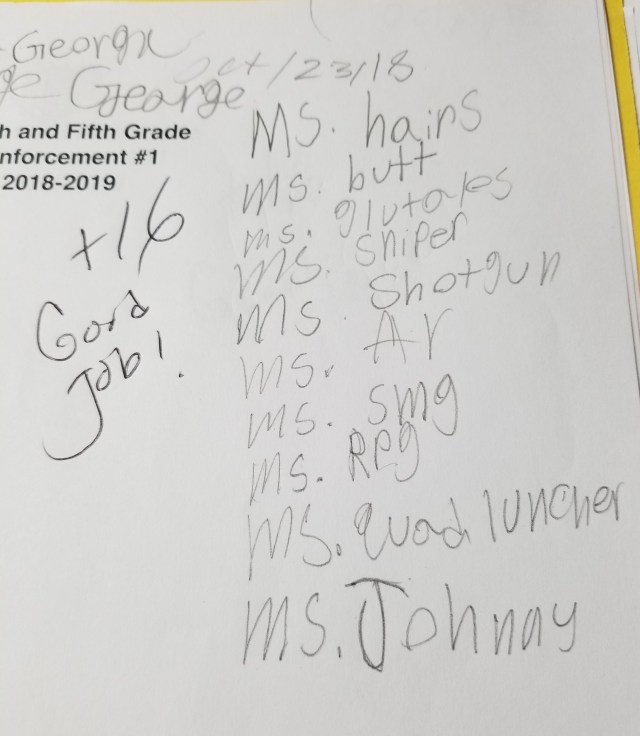 George
George
Oct/23/18
h and Fifth Grade
nforcement #1
2018-2019
+16
Good
Job!
Ms. hairs
ms. butt
ms. glutales
ms. sniper
ms. Shotgun
ms. Ar
ms. smg
ms. RPg
ms. quad luncher
ms. Johnny